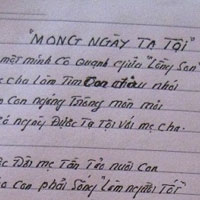 "MONG NGÀY TẠ TỘI"
một mình cô quạnh giữa "Lăng Son"
mẹ cha Lâm Tim con nhói
con ngóng trông mòn mỏi
có ngày được Tạ Tội Với mẹ cha.
Đời mẹ Tần Tảo nuôi con
con phải Sống "Làm người Tốt